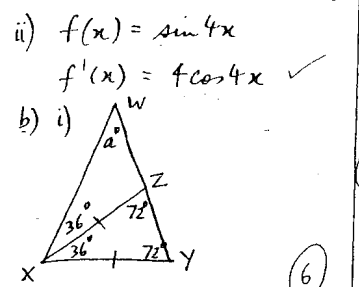 ii) f(x) = sin 4x
f'(x) = 4cos4x ✓
b) i)
W
a°
Z
36°
72°
36°
72°
X
Y
6